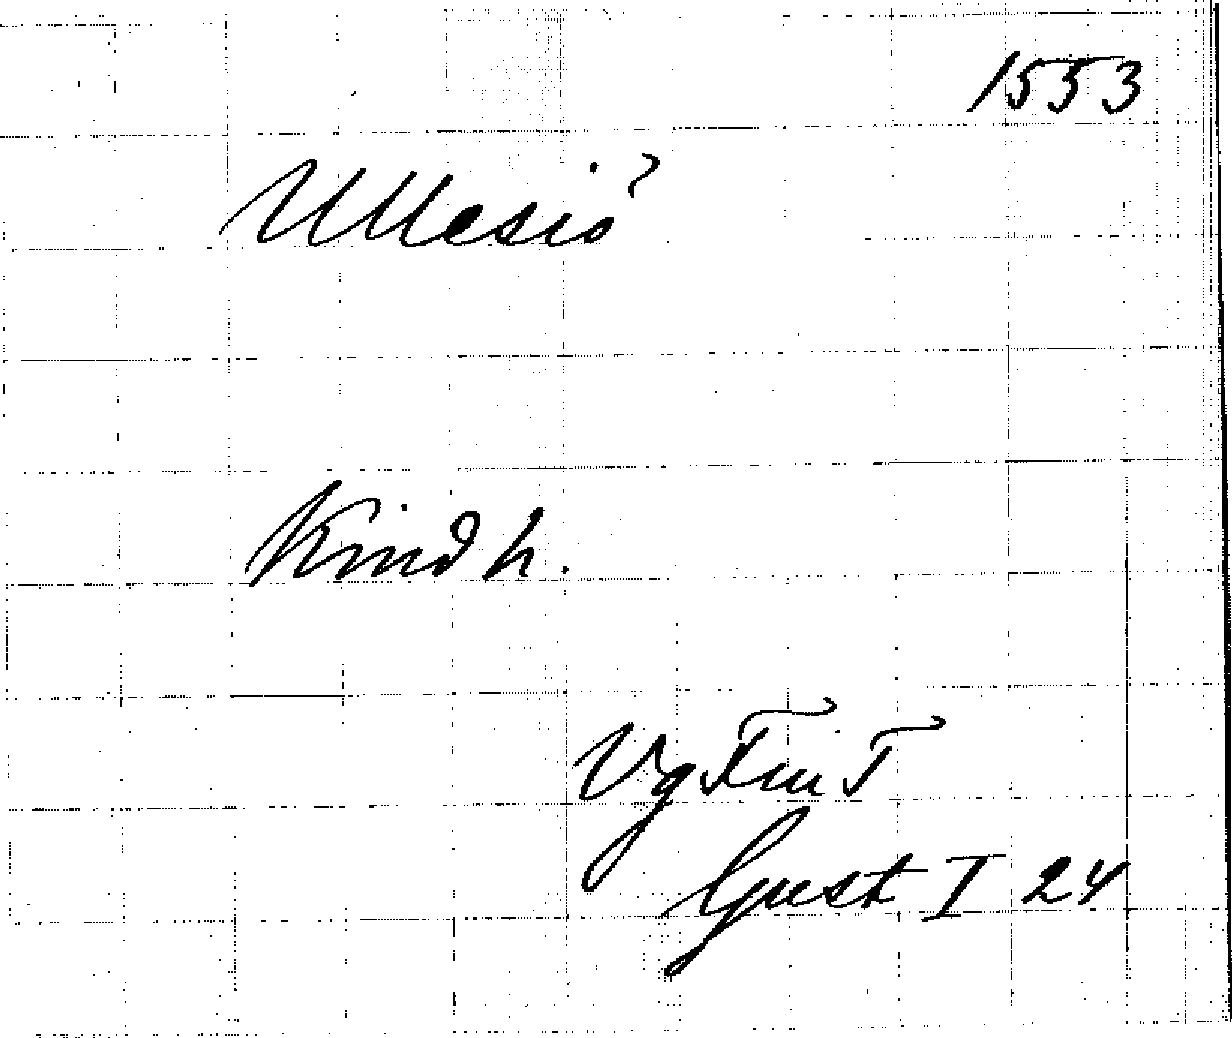 1553
Ullasiö
Kind h.
Vg Fru T
Gust I 24